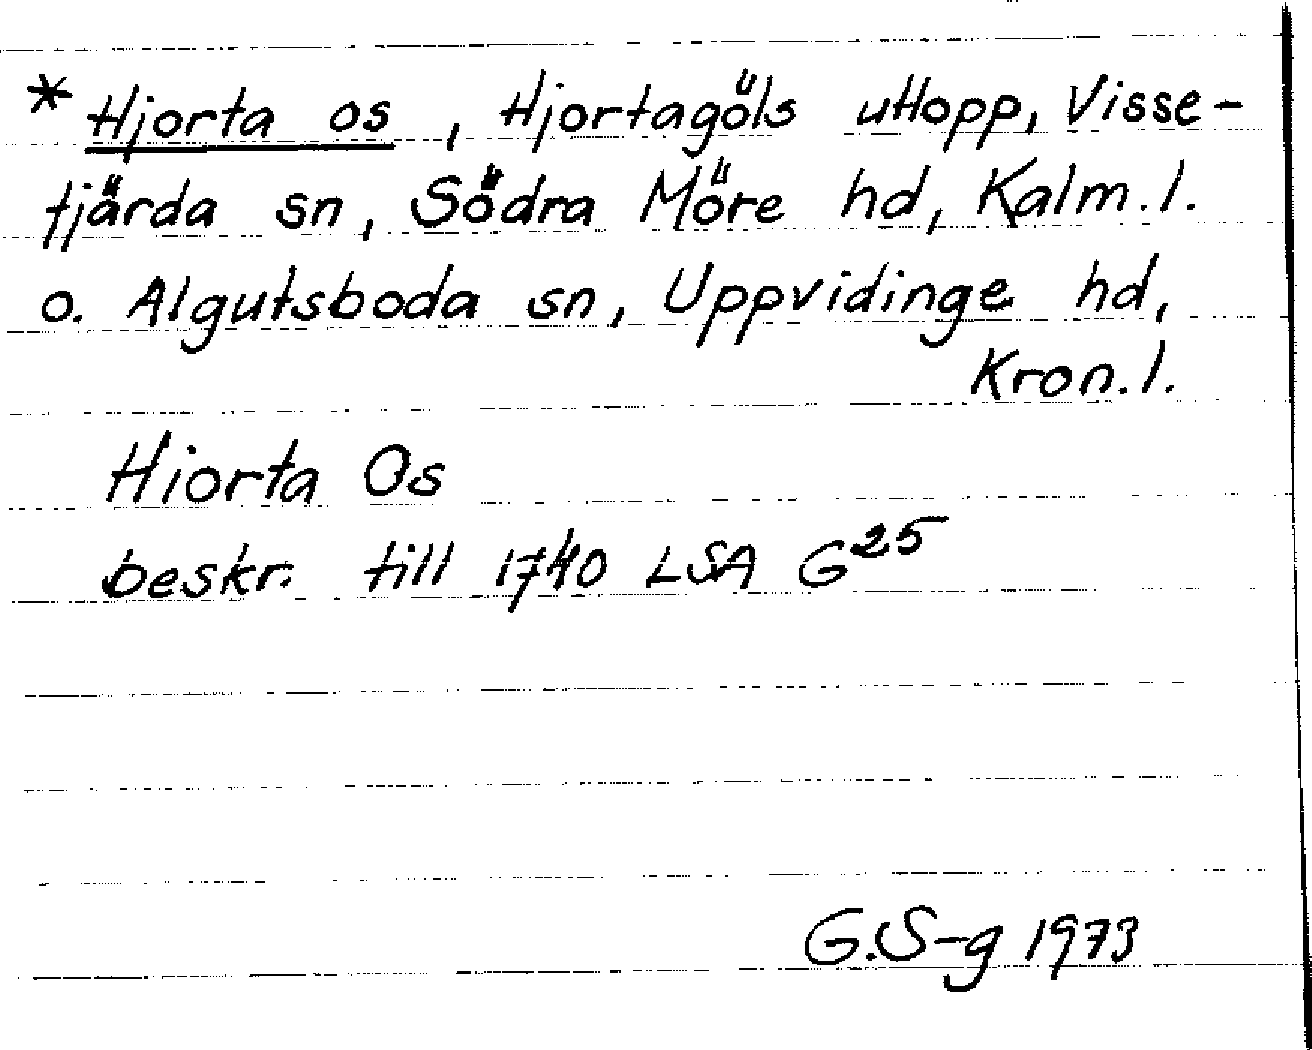 * Hjorta os, Hjortagöls utlopp, Visse-
fjärda sn, Södra Möre hd, Kalm. l.
o. Algutsboda sn, Uppvidinge hd,
Kron. l.
Hiorta Os
beskr. till 1740 LSA G25
G.S-g 1973